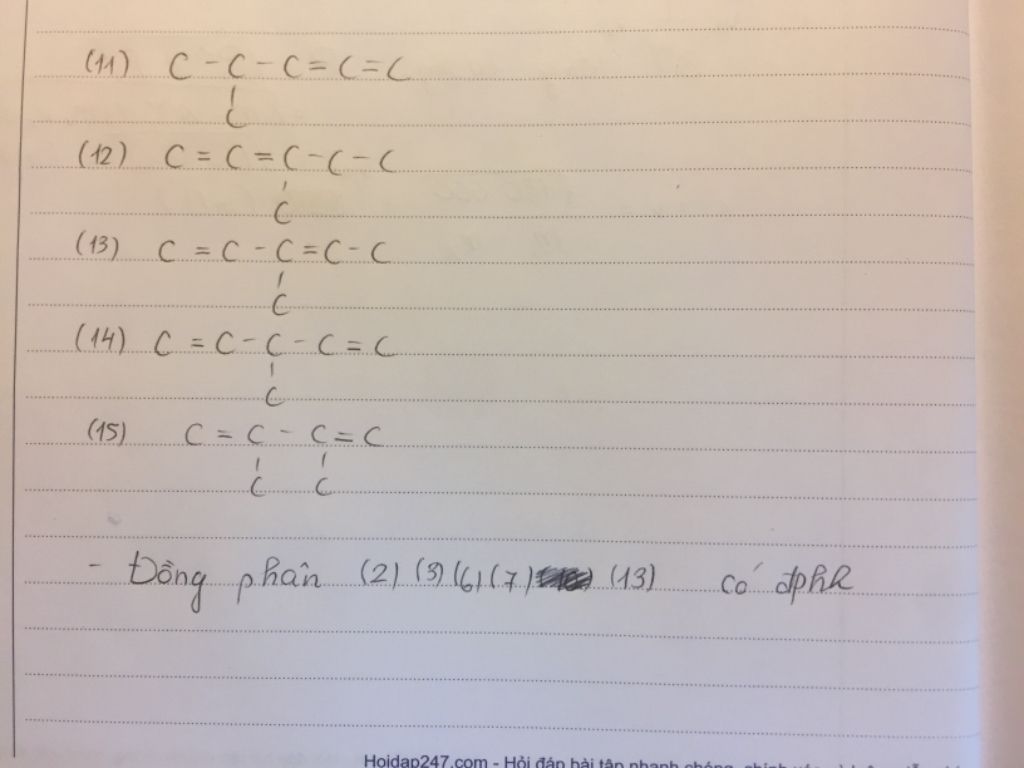 (11) C - C - C = C = C
|
C
(12) C = C = C - C - C
|
C
(13) C = C - C = C - C
|
C
(14) C = C - C - C = C
|
C
(15) C = C - C = C
| |
C C
- Đồng phân (2) (3) (6) (7) (13) có đphh
Hoidap247.com - Hỏi đáp bài tập nhanh chóng, chính xác